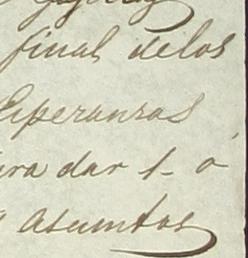 final delos
Esperanzas
ara dar 1- o
asuntos